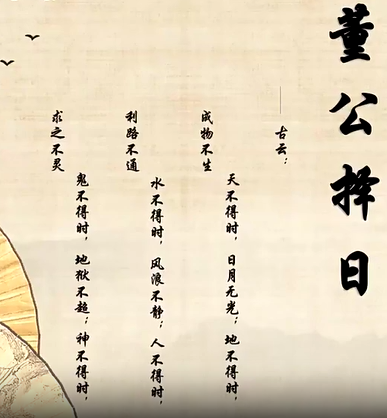 董公择日
——古云：
天不得时，日月无光；地不得时，
成物不生
水不得时，风浪不静；人不得时，
利路不通
鬼不得时，地狱不超；神不得时，
求之不灵